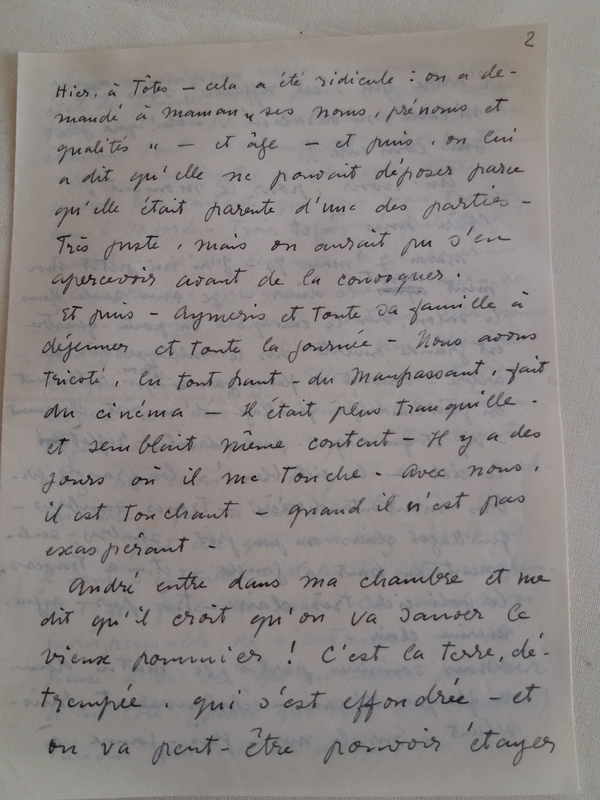 2
Hier. à Tôtes — cela a été ridicule : on a de-
mandé à maman „ ses noms, prénoms et
qualités " — et âge — et puis, on lui
a dit qu'elle ne pouvait déposer parce
qu'elle était parente d'une des parties -
Très juste, mais on aurait pu s'en
apercevoir avant de la convoquer.
Et puis - Aymeris et toute sa famille à
déjeuner et toute la journée - Nous avons
tricoté, lu tout haut - du Maupassant, fait
du cinéma — Il était plus tranquille -
et semblait même content — Il y a des
jours où il me touche - Avec nous,
il est touchant - quand il n'est pas
exaspérant -
André entre dans ma chambre et me
dit qu'il croit qu'on va sauver le
vieux pommier ! C'est la terre, dé-
trempée, qui s'est effondrée - et
on va peut-être pouvoir étayer